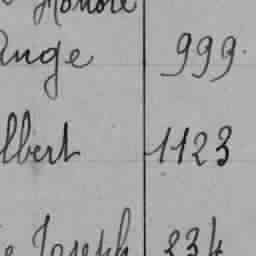 Honoré
Ange 999.
lbert 1123
Joseph 234